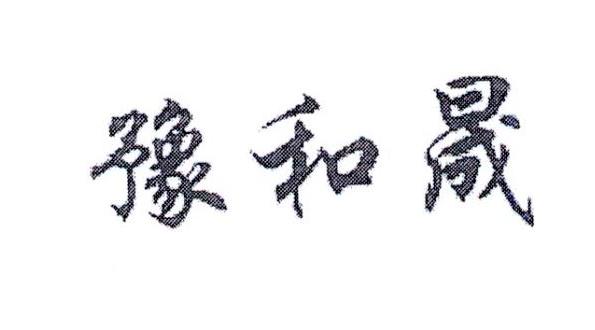 豫和晟